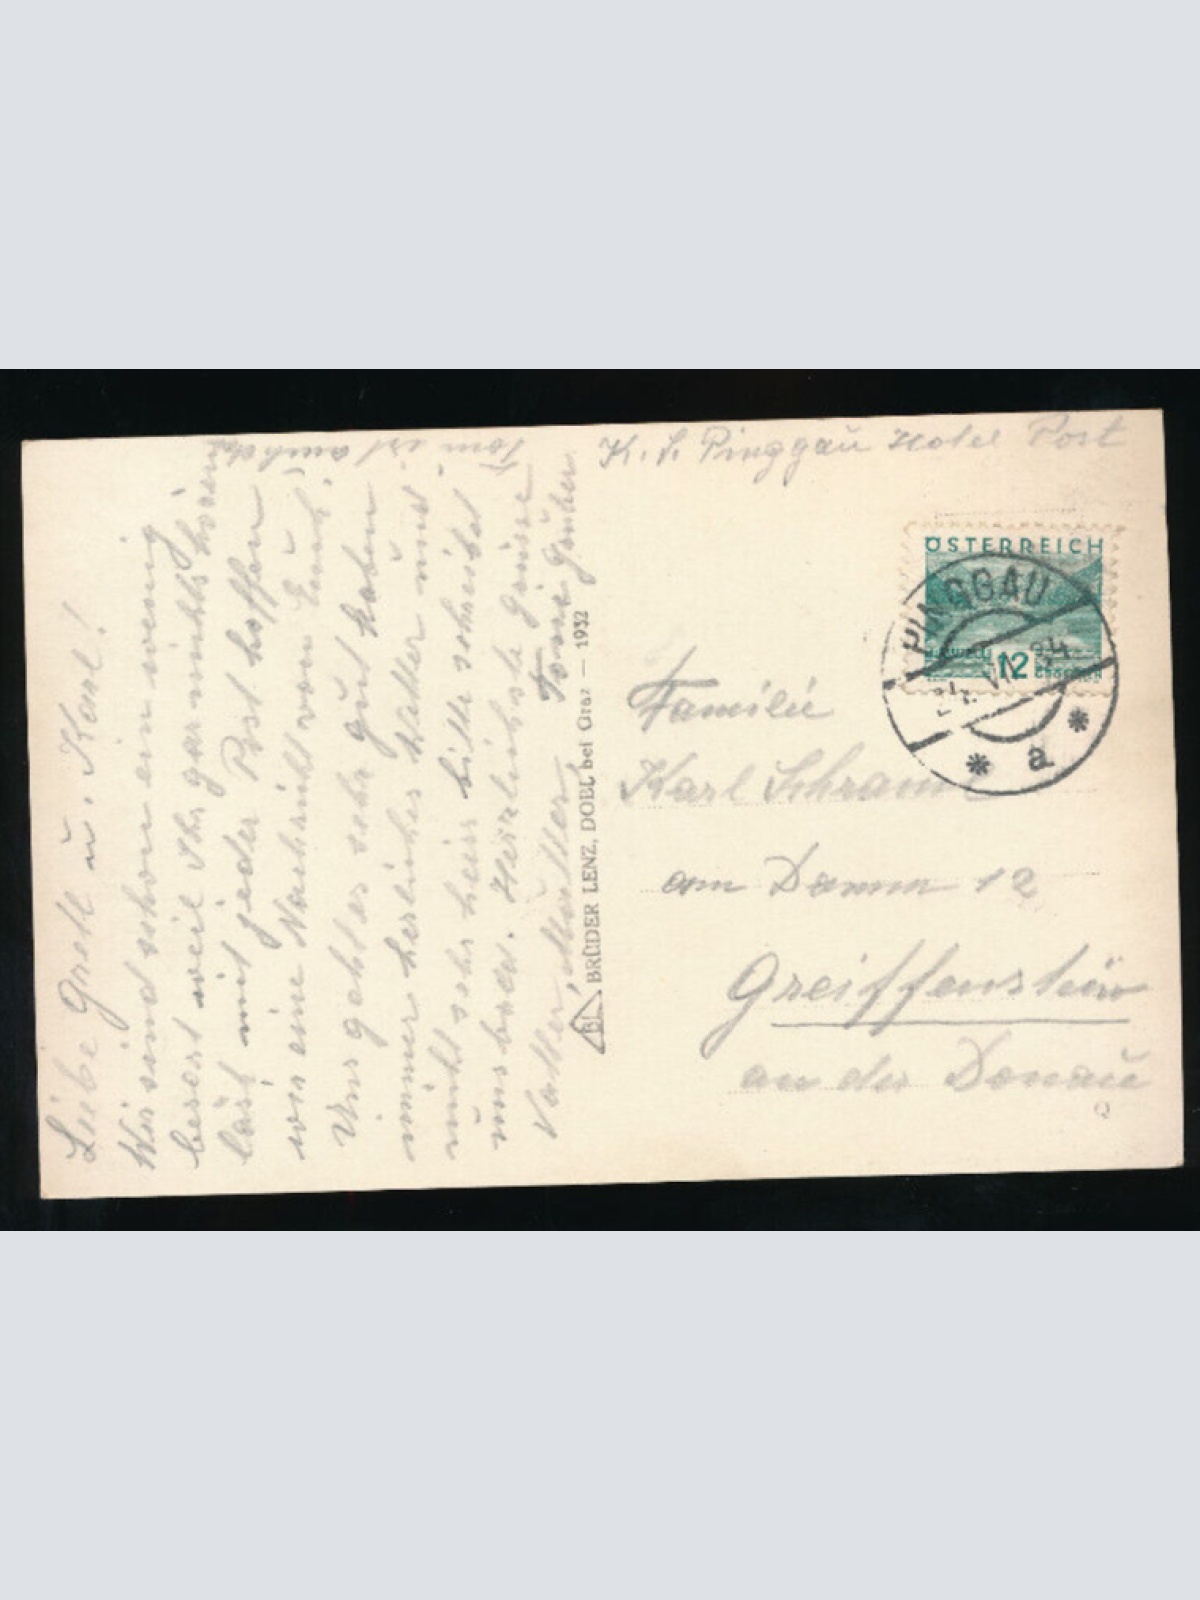 Liebe Gretl u. Karl!
Wir sind schon ein wenig
besorgt weil Ihr gar nichts hören
läst mit jeder Post hoffen
wir eine Nachricht von Euch.
Uns geht es sehr gut haben
immer herliches Wetter und
nicht sehr heiss bitte schreibt
uns bald. Herzlichste Grüsse
Vater, Mutter,
Toni ist auch da
BL BRÜDER LENZ, DOBL bei Graz — 1932
Pinggau Hotel Post
ÖSTERREICH
12
GROSCHEN
PINGGAU
* a *
Familie
Karl Schramm
am Damm 12
Greiffenstein
an der Donau